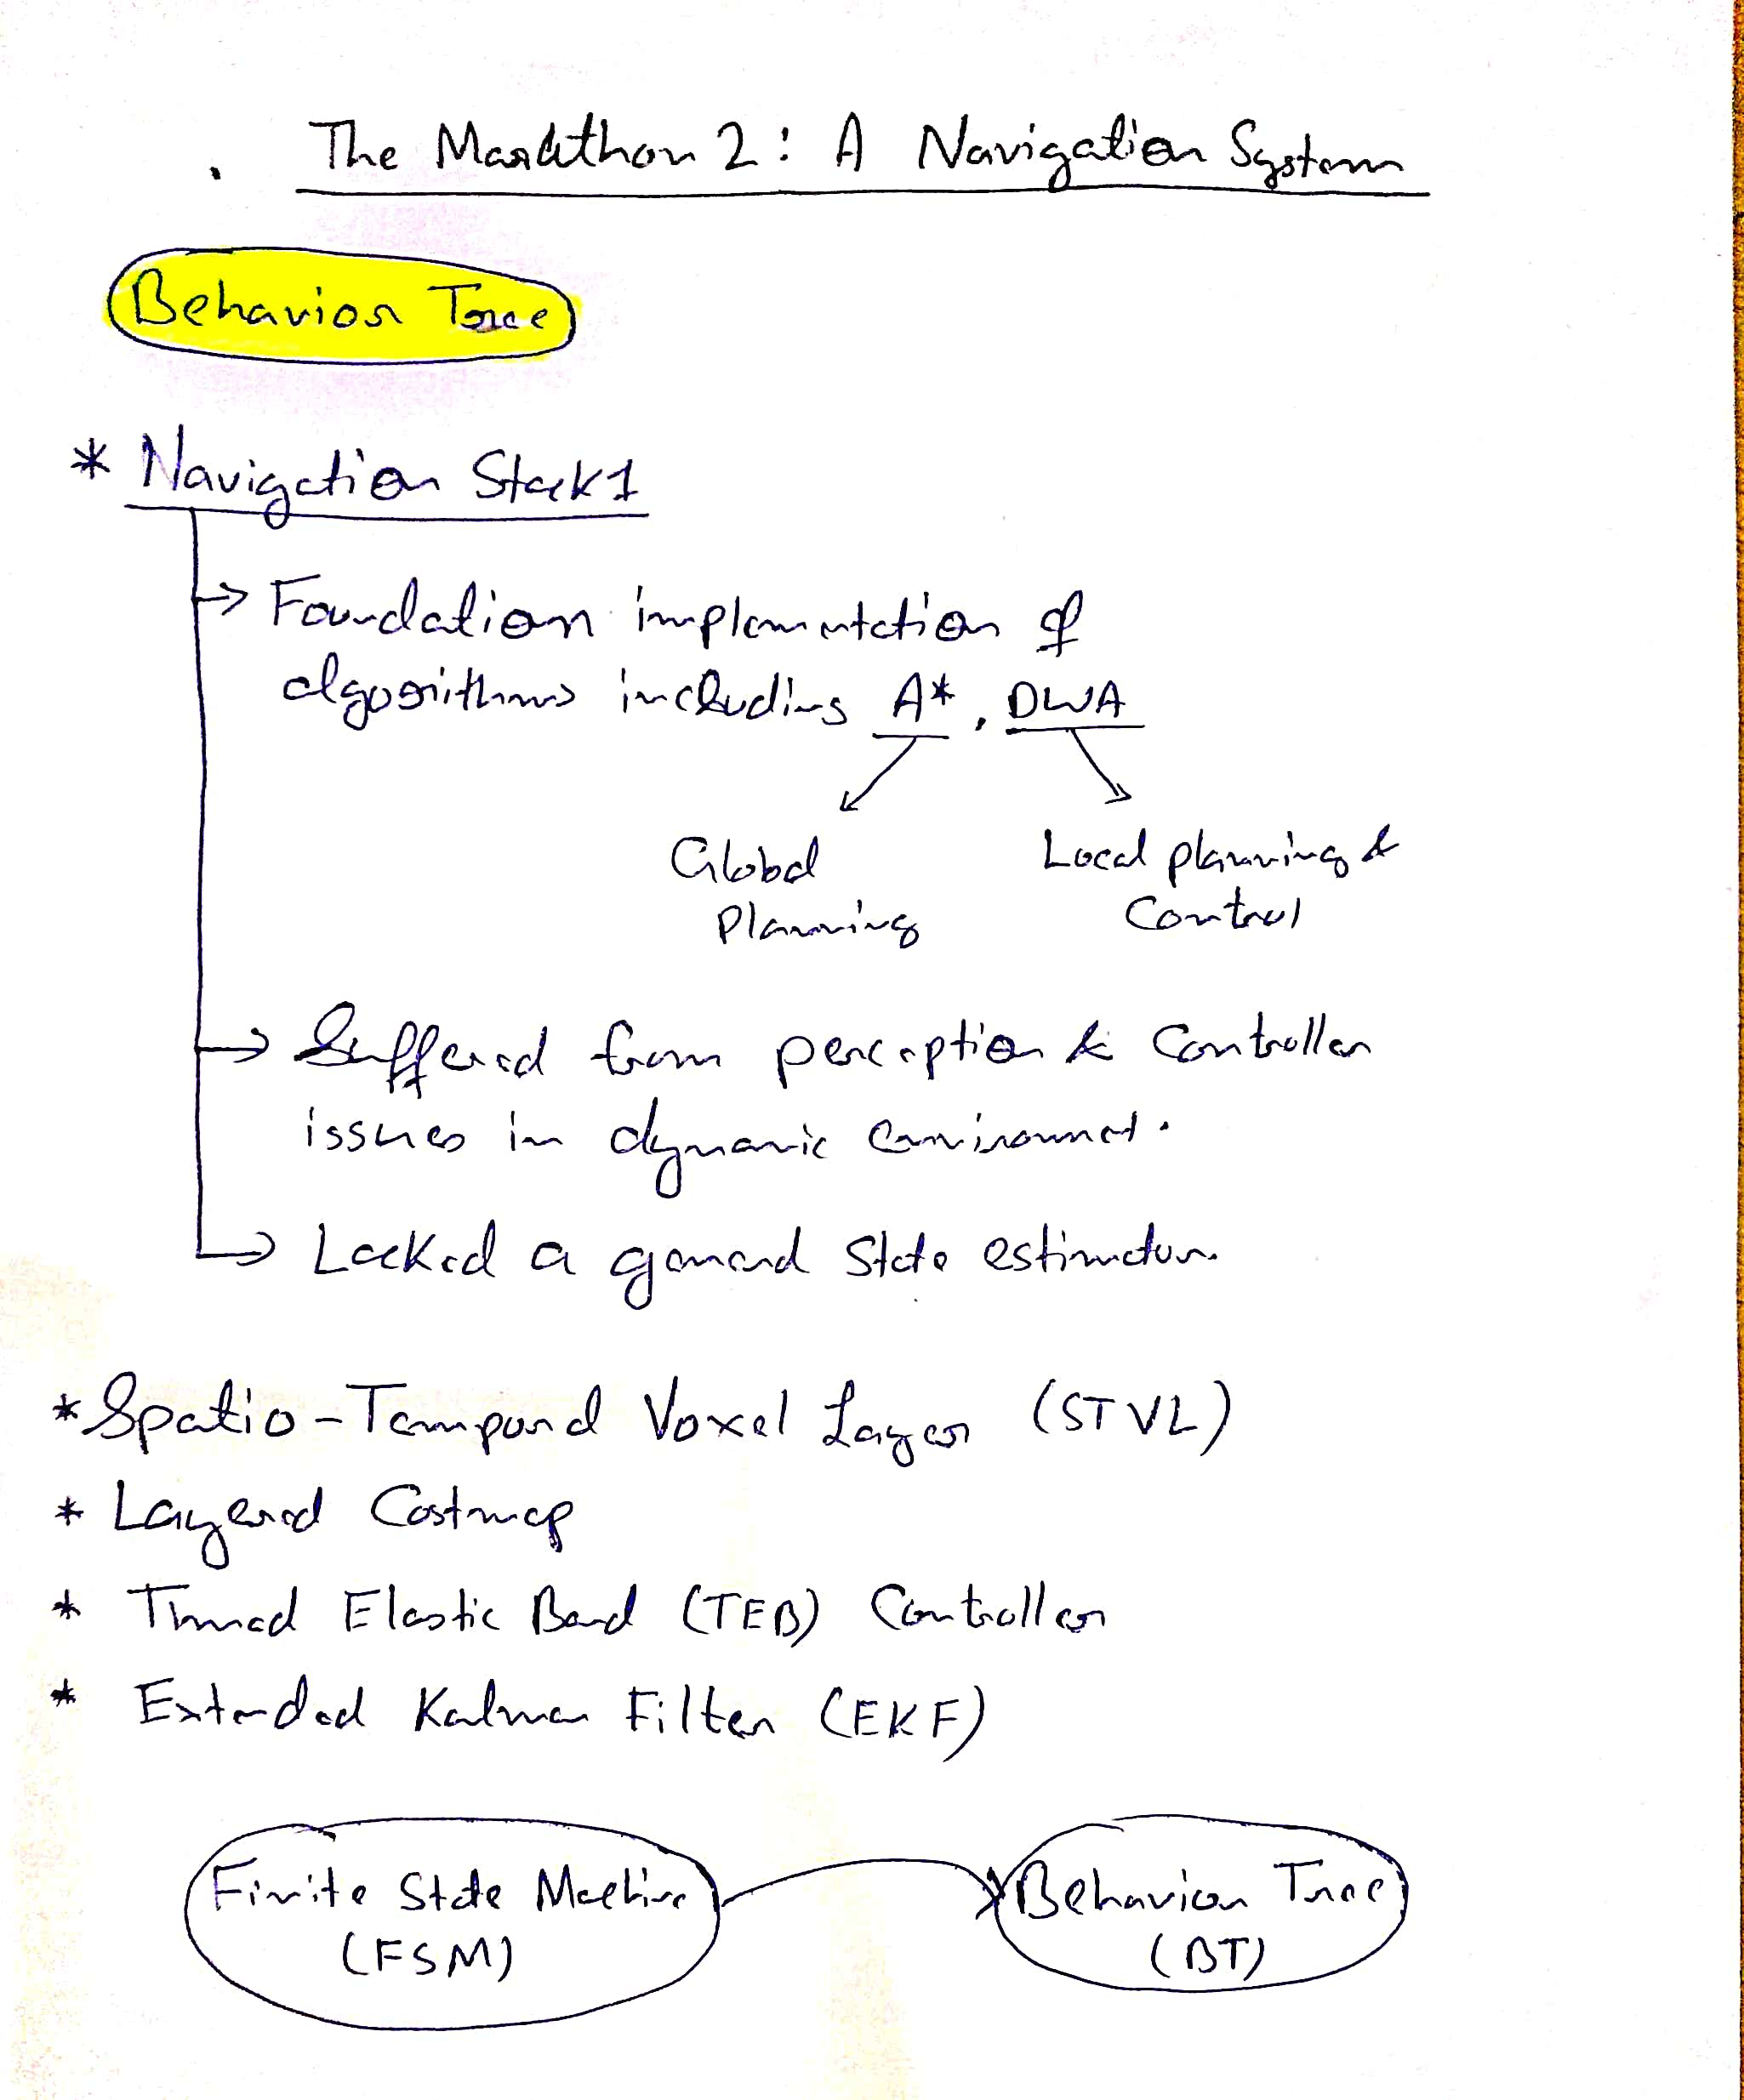 The Marathon 2: A Navigation System
Behavior Tree
* Navigation Stack1
→ Foundation implementation of
algorithms including A*, DWA
Global
Planning
Local planning &
Control
→ Suffered from perception & Controller
issues in dynamic environment.
→ Lacked a general state estimator.
* Spatio-Temporal Voxel Layer (STVL)
* Layered Costmap
* Timed Elastic Band (TEB) Controller
* Extended Kalman Filter (EKF)
Finite State Machine
(FSM)
Behavior Tree
(BT)